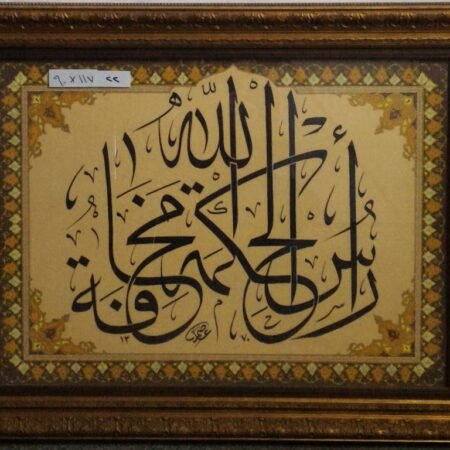 ٩٠×١١٧ ٢٢
رأس الحكمة مخافة الله
١٣٧٠